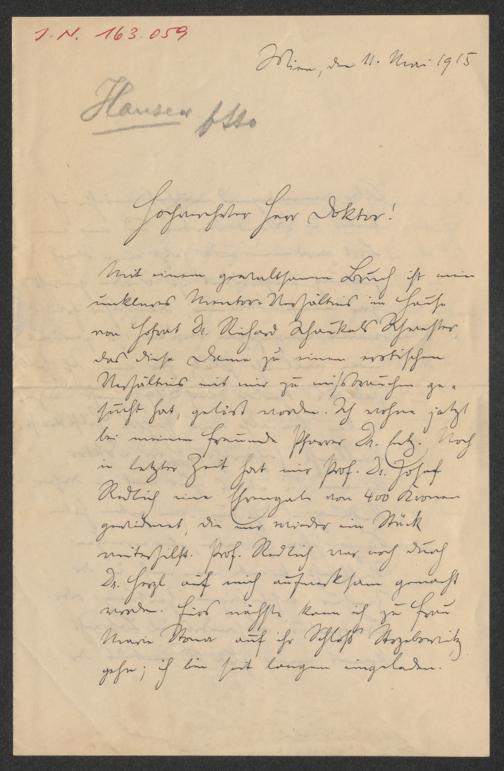 J. N. 163.059
Wien, den 11. Mai 1915
Hauser Otto
Hochverehrter Herr Doktor!
Mit einem gewaltsamen Bruch ist mein
unklares Mentor-Verhältnis im Hause
von Hofrat Dr. Richard Schaukals Schwester,
das diese Dame zu einem erotischen
Verhältnis mit mir zu missbrauchen ge-
sucht hat, gelöst worden. Ich wohne jetzt
bei meinem Freunde Pfarrer Dr. Noch
in letzter Zeit hat mir Prof. Dr. Josef
Redlich eine Ehrengabe von 400 Kronen
gewidmet, die mir wieder ein Stück
weiterhilft. Prof. Redlich war noch durch
Dr. Herzl auf mich aufmerksam gemacht
worden. Fürs nächste kann ich zu Frau
Marie Stona auf ihr Schloß Strzebowitz
gehn; ich bin seit langem eingeladen.